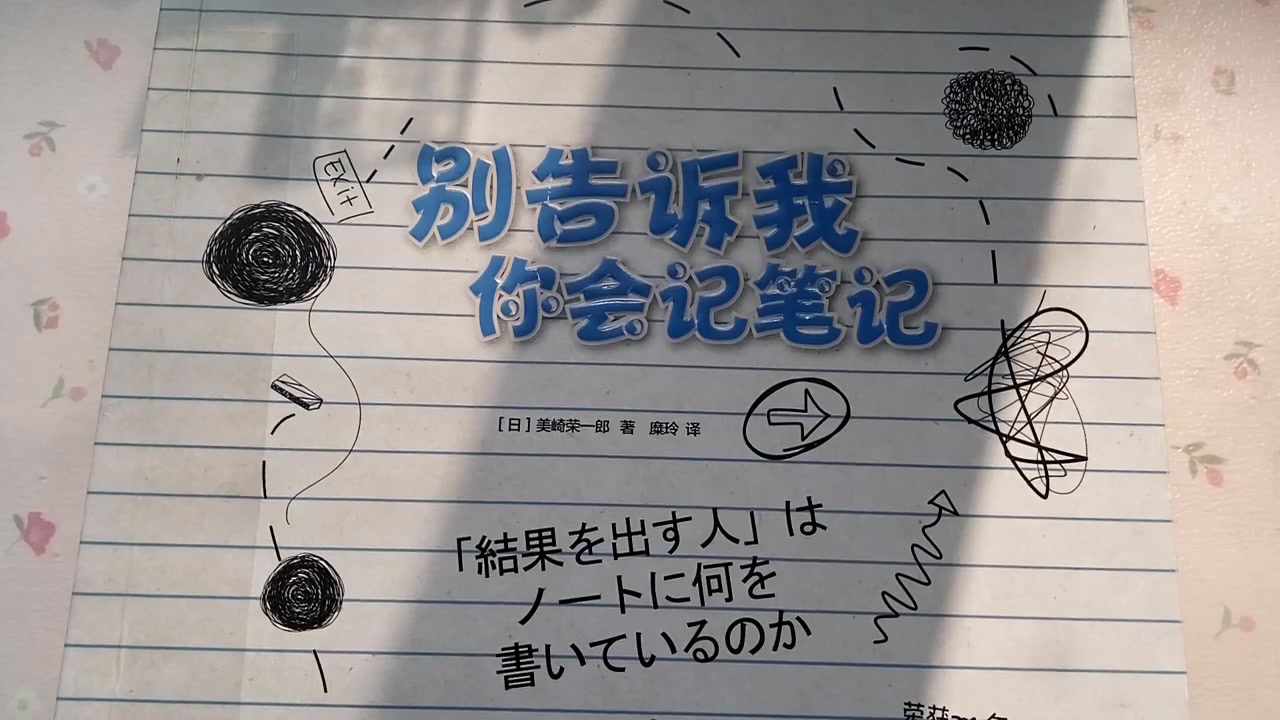 EXit
别告诉我
你会记笔记
[日]美崎荣一郎 著 糜玲 译
「結果を出す人」は
ノートに何を
書いているのか
荣获